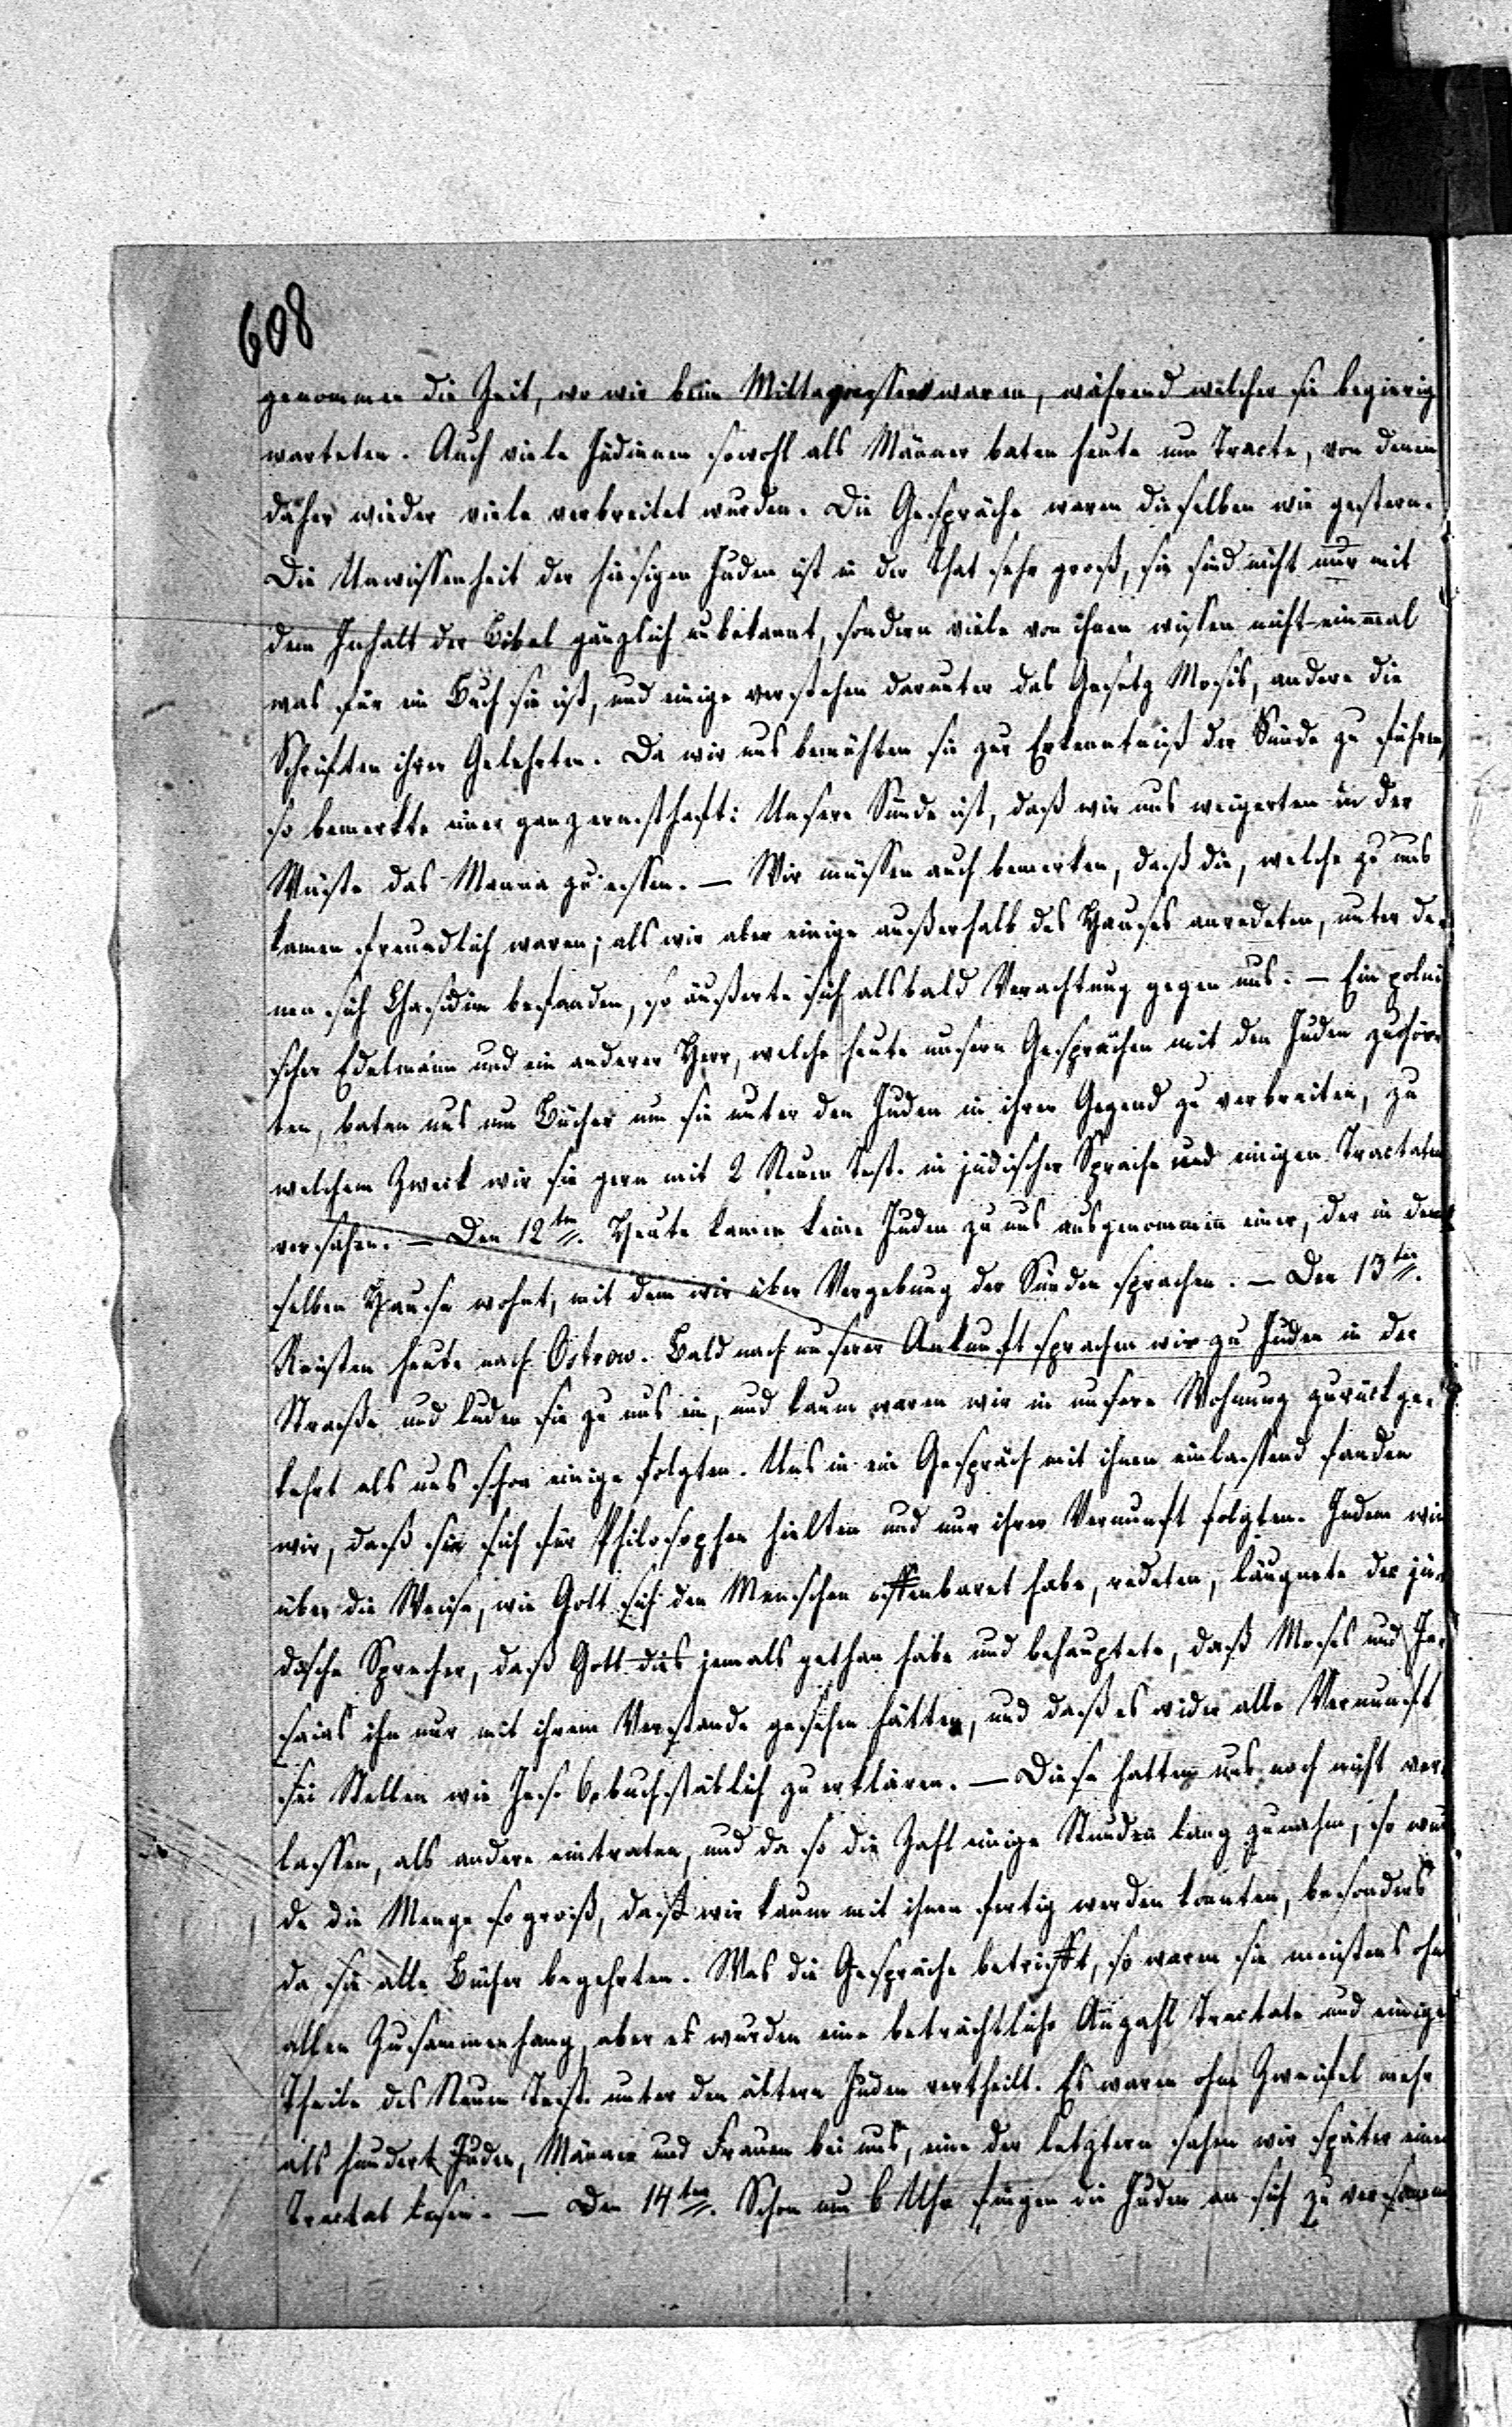 608
genommen die Zeit, wo wir beim Mittagessen waren, während welcher sie begierig
warteten. Auch viele Jüdinnen sowohl als Männer baten heute um Tracte, von denen
daher wieder viele verbreitet wurden. Die Gespräche waren dieselben wie gestern.
Die Unwissenheit der hiesigen Juden ist in der That sehr groß, sie sind nicht nur mit
dem Inhalt der Bibel gänzlich unbekannt, sondern viele von ihnen wissen nicht einmal
was für ein Buch sie ist, und einige verstehen darunter das Gesetz Mosis, andere die
Schriften ihrer Gelehrten. Da wir uns bemühten sie zur Erkenntniß der Sünde zu führen,
so bemerkte einer ganz ernsthaft: Unsere Sünde ist, daß wir uns weigerten in der
Wüste das Manna zu essen. — Wir müssen auch bemerken, daß die, welche zu uns
kamen freundlich waren; als wir aber einige außerhalb des Hauses anredeten, unter de-
nen sich Chasidim befanden, so äußerte sich alsbald Verachtung gegen uns. — Ein polni-
scher Edelmann und ein anderer Herr, welche heute unsern Gesprächen mit den Juden zuhör-
ten, baten uns um Bücher um sie unter den Juden in ihrer Gegend zu verbreiten, zu
welchem Zweck wir sie gern mit 2 Neuen Test. in jüdischer Sprache und einigen Tractaten
versahen. — Den 12ten. Heute kamen keine Juden zu uns ausgenommen einer, der in dem
selben Hause wohnt, mit dem wir über Vergebung der Sünden sprachen. — Den 13ten.
Reisten heute nach Ostrow. Bald nach unserer Ankunft sprachen wir zu Juden in der
Straße und luden sie zu uns ein, und kaum waren wir in unsere Wohnung zurückge-
kehrt als uns schon einige folgten. Uns in ein Gespräch mit ihnen einlassend fanden
wir, daß sie sich für Philosophen hielten und nur ihrer Vernunft folgten. Indem wir
über die Weise, wie Gott sich den Menschen offenbaret habe, redeten, läugnete der jü-
dische Sprecher, daß Gott dies jemals gethan habe und behauptete, daß Moses und Je-
saias ihn nur mit ihrem Verstande gesehen hätten, und daß es wider alle Vernunft
sei Stellen wie Jes. 6. buchstäblich zu erklären. — Diese hatten uns noch nicht ver-
lassen, als andere eintraten, und da so die Zahl einige Stunden lang zunahm, so wur
de die Menge so groß, daß wir kaum mit ihnen fertig werden konnten, besonders
da sie alle Bücher begehrten. Was die Gespräche betrifft, so waren sie meistens ohne
allen Zusammenhang, aber es wurden eine beträchtliche Anzahl Tractate und einige
Theile des Neuen Test. unter den ältern Juden vertheilt. Es waren ohne Zweifel mehr
als hundert Juden, Männer und Frauen bei uns, eine der letztern sahen wir später einen
Tractat lesen. — Den 14ten. Schon um 6 Uhr fingen die Juden an sich zu versamm